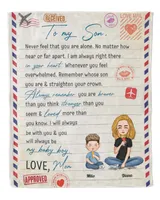 RECEIVED
To my Son,
Never feel that you are alone. No matter how
near or far apart. I am always right there
in your heart. Whenever you feel
overwhelmed. Remember whose son
you are & straighten your crown.
Always remember you are braver
than you think stronger than you
seem & loved more than
you know. I will always
be with you & you
will always be
my baby boy.
LOVE, Mom
APPROVED